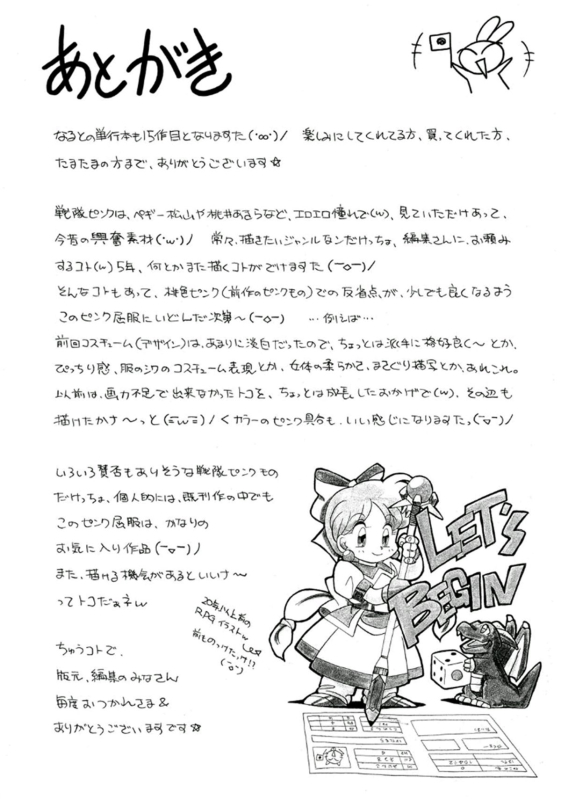 あとがき
なるとの単行本も15作目となりますた(・∞・)ノ 楽しみにしてくれてる方、買ってくれた方、
たまたまの方まで、ありがとうございます☆
戦隊ピンクは、ペギー松山や桃井あきらなど、エロエロ憧れで(w)、見ていただけあって、
今昔の興奮素材(・w・)ノ 常々、描きたいジャンルなンだけっちょ、編集さんに、お頼み
するコト(w)5年、何とかまた描くコトがでけますた(ー▽ー)ノ
そんなコトもあって、桃色ピンク(前作のピンクもの)での反省点が、少しでも良くなるよう
このピンク屈服にいどんだ次第〜(ー▽ー) …例えば…
前回コスチューム(デザイン)は、あまりに淡白だったので、ちょっとは派手に格好良く〜とか、
ぴっちり感、服のシワのコスチューム表現とか、女体の柔らかさ、まさぐり描写とか、あれこれ。
以前は、画力不足で出来なかったトコを、ちょっとは成長したおかげで(w)、その辺も
描けたかナ〜っと(=w=)ノ くカラーのピンク具合も、いい感じになりますたっ(ー▽ー)ノ
いろいろ賛否もありそうな戦隊ピンクもの
だけっちょ、個人的には、既刊作の中でも
このピンク屈服は、かなりの
お気に入り作品(ー▽ー)ノ
また、描ける機会があるといいナ〜
ってトコだぁネw
20年以上前の
RPGイラストw
前ものっけたっけ!?
(ー▽ー)
LET'S
BEGIN
ちゅうコトで、
版元、編集のみなさん
毎度おつかれさま&
ありがとうございますです☆